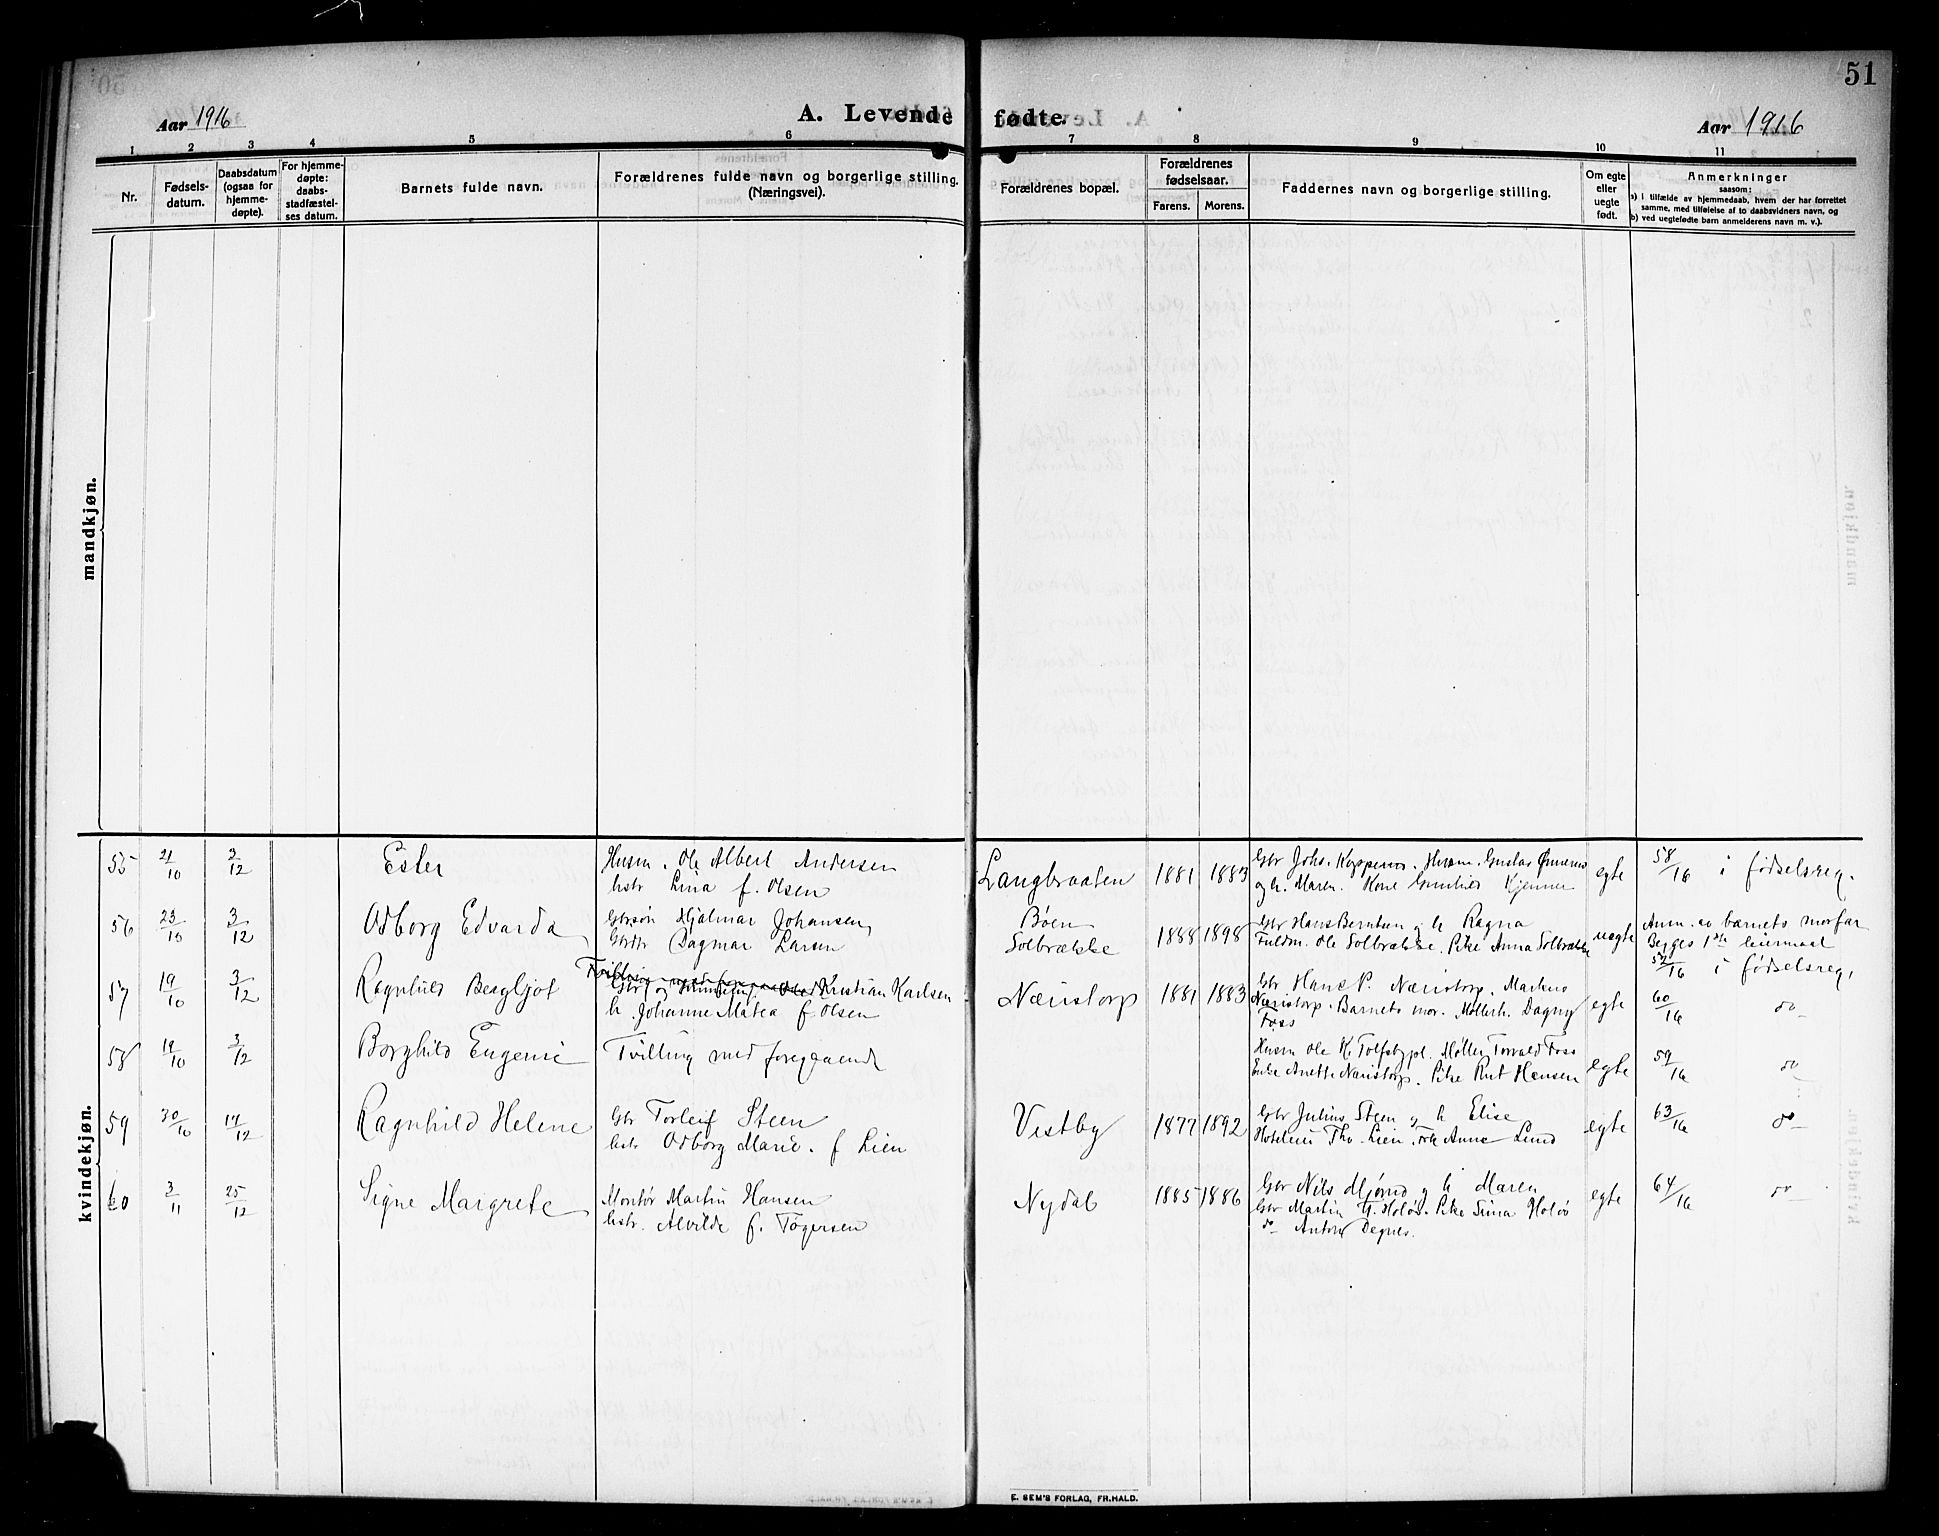 51
Aar 1916
A. Levende fødte.
Aar 1916
1 2 3 4 5 6 7 8 9 10 11
Nr.
Fødsels-
datum.
Daabsdatum
(ogsaa for
hjemme-
døpte).
For hjemme-
døpte:
daabs-
stadfæstel-
ses datum.
Barnets fulde navn.
Forældrenes fulde navn og borgerlige stilling.
(Næringsvei).
Forældrenes bopæl.
Forældrenes
fødselsaar.
Farens. Morens.
Faddernes navn og borgerlige stilling.
Om egte
eller
uegte
født.
Anmerkninger
saasom:
a) i tilfælde av hjemmedaab, hvem der har forrettet
samme, med tilføielse af to daabsvidners navn, og
b) ved uegtefødte barn anmelderens navn m. v.).
mandkjøn.
kvindekjøn.
55 21/10 3/12 Ester
Husm. Ole Albert Andersen
hstr Lina f. Olsen
Langbraaten 1881 1883
Gbr Johs. Koppernes. Husm. Gustav
og h. Maren. Kone Kjenner
egte
58/16 i fødselsreg.
56 23/10 3/12 Odborg Edvarda
Gbrsøn Hjalmar Johansen,
Gbrdtr Dagmar Larsen
Bøen
Solbrække
1888 1898
Gbr Hans Berntsen og h Ragna
Fuldm. Ole Solbrække. Pike Anna Solbrække
uegte
Anm. av barnets morfar
Begges 1ste leiermaal
52/16 i fødselsreg.
57 19/10 3/12 Ragnhild Bergljot
Tvilling med foregaaende
Gbr Kristian Karlsen
h. Johanne Matea f Olsen
Næristorp 1881 1883
Gbr Hans P. Næristorp. Martius
Næristorp. Barnets mor. Møllerh. Dagny
Foss
egte
60/16 do
58 19/10 3/12 Borghild Eugenie
Tvilling med foregaaende
Husm Ole K. Tolfsbypl. Møller Torvald Foss
Enke Anette Næristorp. Pike Rut Hansen
egte
59/16 do
59 30/10 17/12 Ragnhild Helene
Gbr Torleif Steen
hstr Odborg Marie. f Lien
Vestby 1877 1892
Gbr Julius Steen og h Elise
Hoteleier Th. Lien. Frk Anna Lund
egte
63/16 do
60 3/11 25/12 Signe Margrete
Montør Martin Hansen
hstr. Alvilde f. Tøgersen
Nydal 1885 1886
Gbr Nils Mjørud og h Maren
Gbr Martin H. Holøs. Pike Signa Holøs
do Antone Degnes.
egte
64/16 do
E. SEM'S FORLAG, FR.HALD.